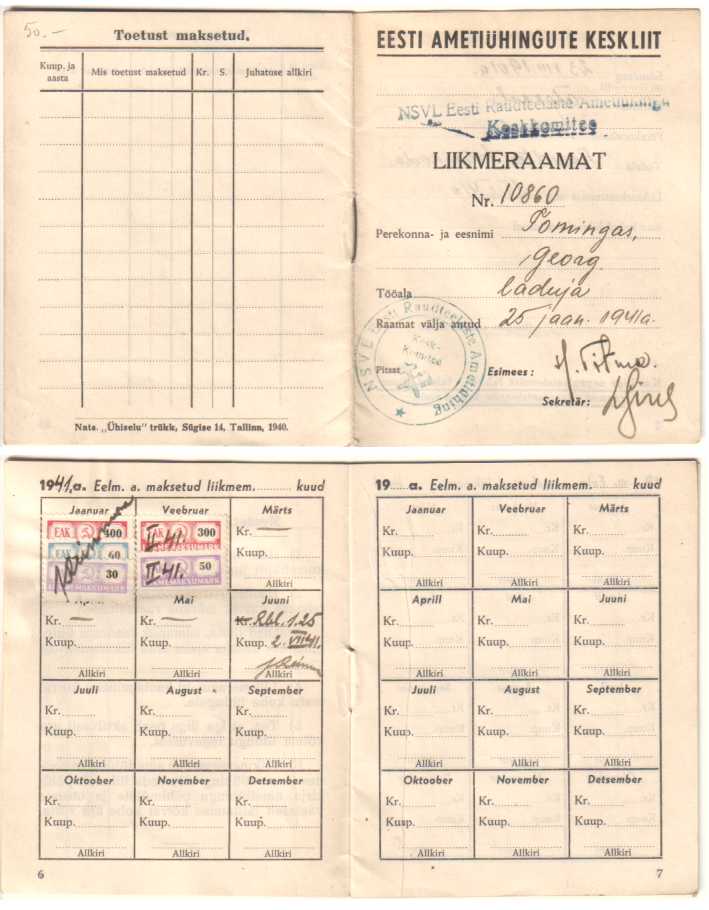 50.–
Toetust maksetud.
Kuup. ja aasta
Mis toetust maksetud
Kr.
S.
Juhatuse allkiri
Nats. „Ühiselu" trükk, Sügise 14, Tallinn, 1940.
EESTI AMETIÜHINGUTE KESKLIIT
NSVL Eesti Raudteelaste Ametiühingu
Keskkomitee
LIIKMERAAMAT
Nr. 10860
Perekonna- ja eesnimi Tomingas,
Georg
Tööala laduja
Raamat välja antud 25 jaan. 1941a.
Pitsat
NSVL Eesti Raudteelaste Ametiühing
Kesk-
Komitee
Esimees:
Sekretär:
1941.a. Eelm. a. maksetud liikmem. kuud
Jaanuar Veebruar Märts
EAK 400
EAK 300
Kr. —
60
II 41.
Kuup.
30
50
II 41.
LIIKMEMAKSUMARK
Allkiri
Aprill Mai Juuni
Kr. — Kr. — Kr. Rbl. 1.25
Kuup. Kuup. Kuup. 2. VII 41.
Allkiri Allkiri Allkiri
Juuli August September
Kr. Kr. Kr.
Kuup. Kuup. Kuup.
Allkiri Allkiri Allkiri
Oktoober November Detsember
Kr. Kr. Kr.
Kuup. Kuup. Kuup.
Allkiri Allkiri Allkiri
6
19 a. Eelm. a. maksetud liikmem. kuud
Jaanuar Veebruar Märts
Kr. Kr. Kr.
Kuup. Kuup. Kuup.
Allkiri Allkiri Allkiri
Aprill Mai Juuni
Kr. Kr. Kr.
Kuup. Kuup. Kuup.
Allkiri Allkiri Allkiri
Juuli August September
Kr. Kr. Kr.
Kuup. Kuup. Kuup.
Allkiri Allkiri Allkiri
Oktoober November Detsember
Kr. Kr. Kr.
Kusp. Kuup. Kuup.
Allkiri Allkiri Allkiri
7